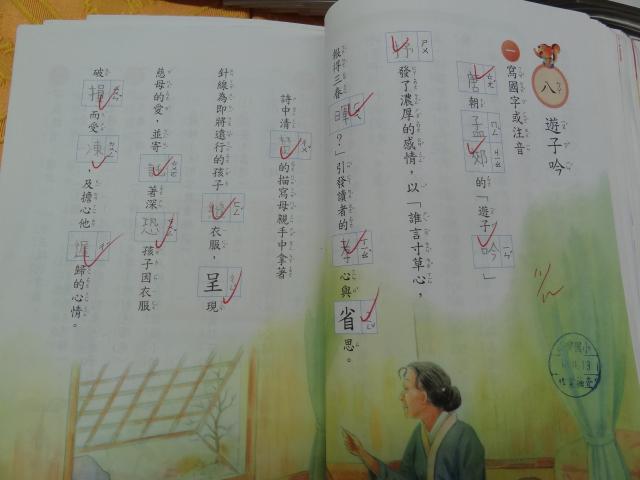 八 遊子吟
一 寫國字或注音
唐朝孟郊的「遊子吟」
抒發了濃厚的感情，以「誰言寸草心，
報得三春暉？」引發讀者的孝心與省思。
詩中清楚的描寫母親手中拿著
針線為即將遠行的孩子縫衣服，呈現
慈母的愛，並寄託著深恐孩子因衣服
破損而受凍，及擔心他遲歸的心情。